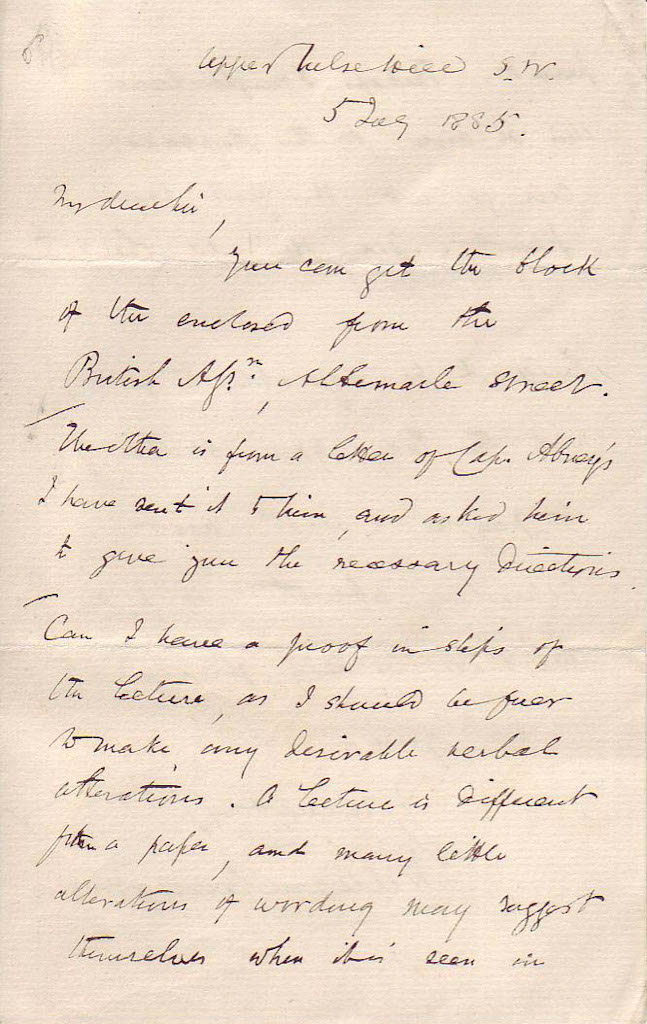 Upper Tulse Hill S.W.
5 July 1885.
My dear Sir,
You can get the block
of the enclosed from the
British Assn., Albemarle Street.
The other is from a letter of Cap. Abney's
I have sent it to him, and asked him
to give you the necessary directions.
Can I have a proof in slips of
the lecture, as I should be
to make any desirable verbal
alterations. A lecture is different
from a paper, and many little
alterations of wording may suggest
themselves when it is seen in